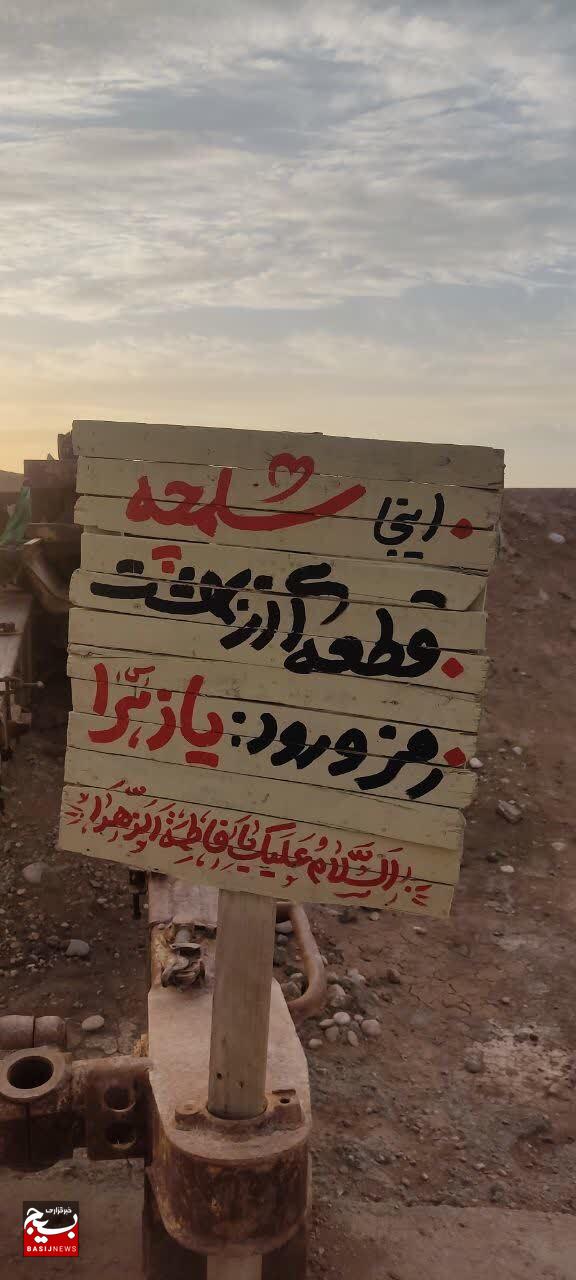 اینجا شلمچه
قطعه‌ای از بهشت
رمز ورود: یا زهرا
السَّلامُ عَلَیکِ یا فاطِمَةُ الزَّهرا
خبرگزاری
بسیج
BASIJNEWS